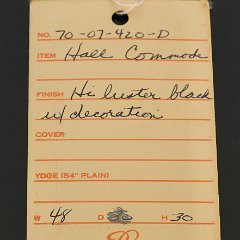 NO. 70-07-420-D
ITEM Hall Commode
FINISH Hi luster black
w/decoration
COVER
YDGE (54" PLAIN)
W 48 D H 30